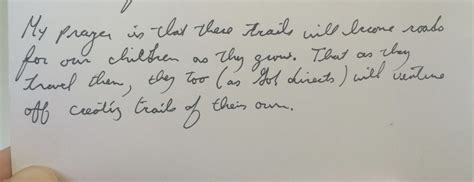 My prayer is that these trails will become roads
for our children as they grow. That as they
travel them, they too (as God directs) will venture
off creating trails of their own.